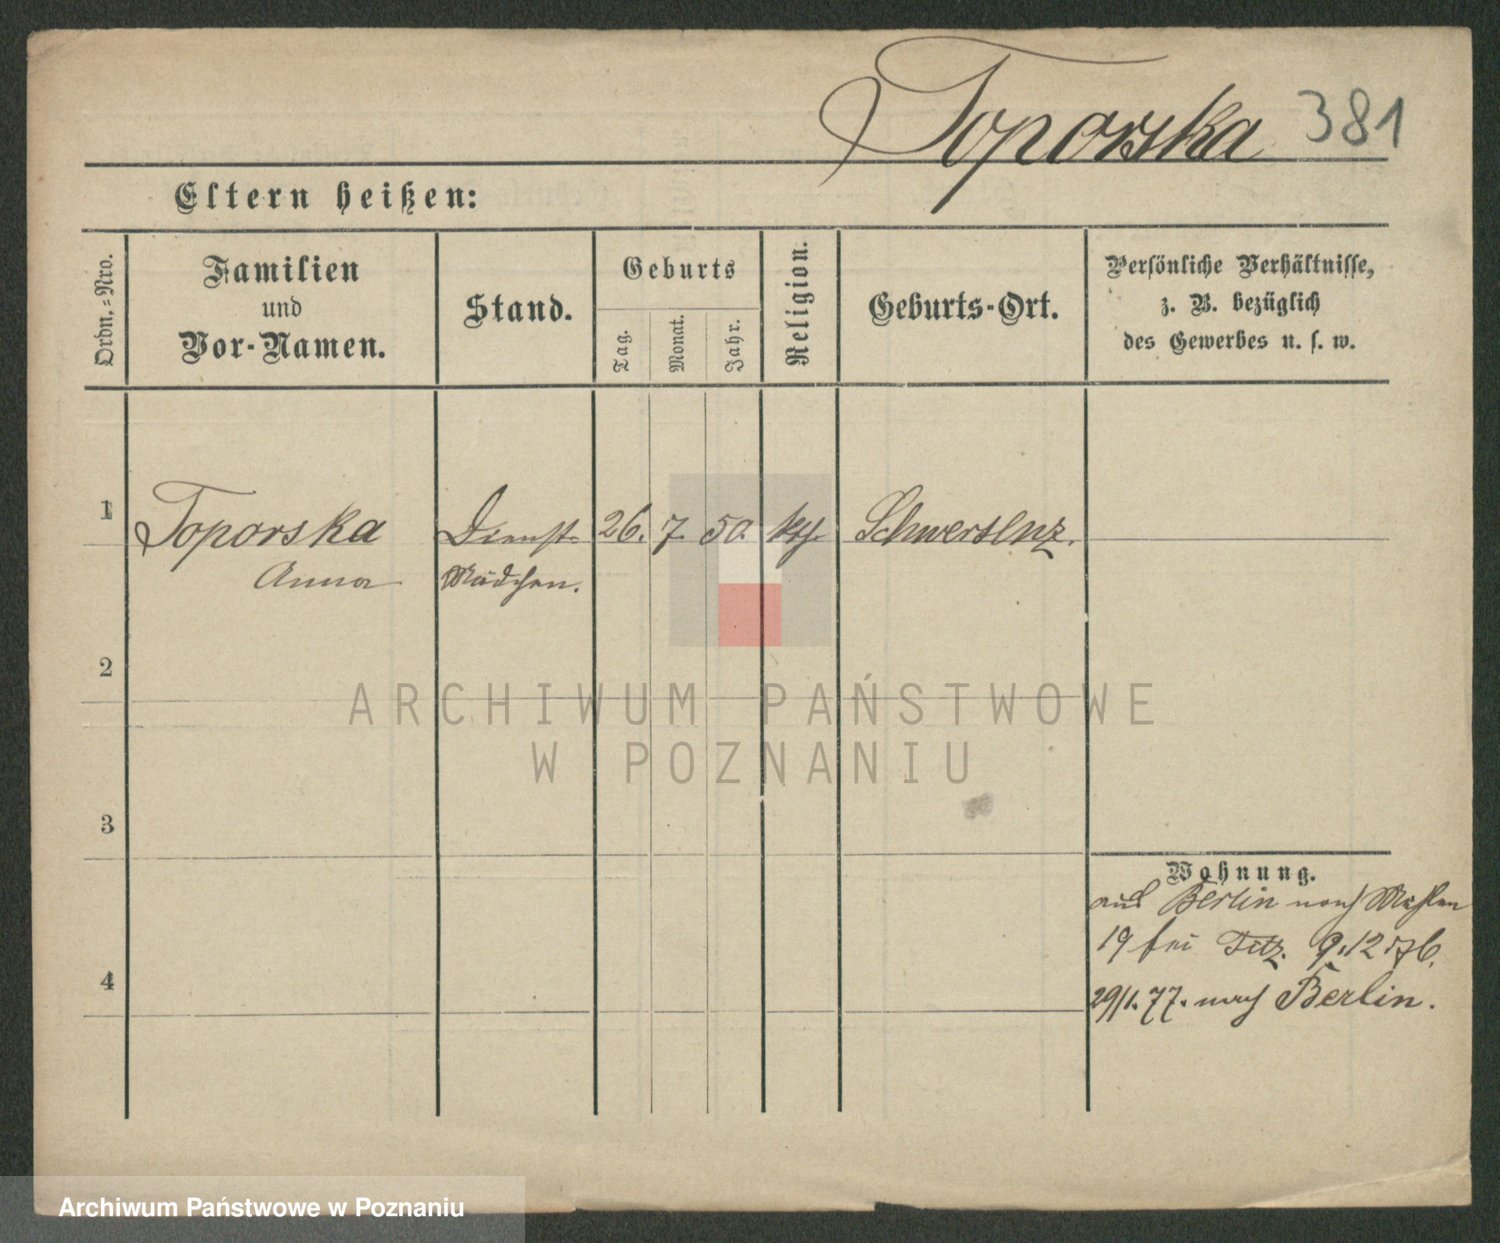 Toporska 381
Eltern heißen:
Ordn.=Nro.
Familien
und
Vor-Namen.
Stand.
Geburts
Tag.
Monat.
Jahr.
Religion.
Geburts-Ort.
Persönliche Verhältnisse,
z. B. bezüglich
des Gewerbes u. s. w.
1 Toporska Dienst- 26. 7. 50. kth. Schwersenz.
Anna Mädchen.
2
3
4
Wohnung.
aus Berlin nach Mühlen
19 bei 9.12 76.
29/1.77. nach Berlin.
ARCHIWUM PAŃSTWOWE
W POZNANIU
Archiwum Państwowe w Poznaniu